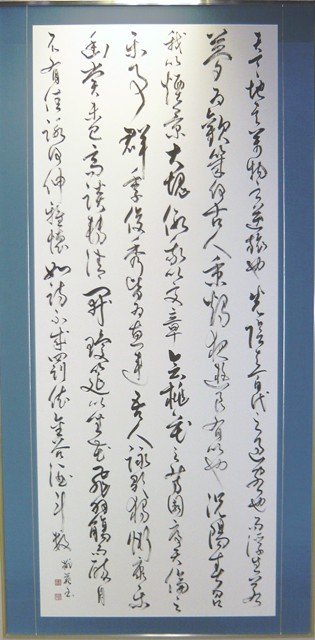 夫天地者萬物之逆旅也光陰者百代之過客也而浮生若
夢為歡幾何古人秉燭夜遊良有以也況陽春召
我以煙景大塊假我以文章會桃花之芳園序天倫之
樂事群季俊秀皆為惠連吾人詠歌獨慚康樂
幽賞未已高談轉清開瓊筵以坐花飛羽觴而醉月
不有佳詠何伸雅懷如詩不成罰依金谷酒斗數